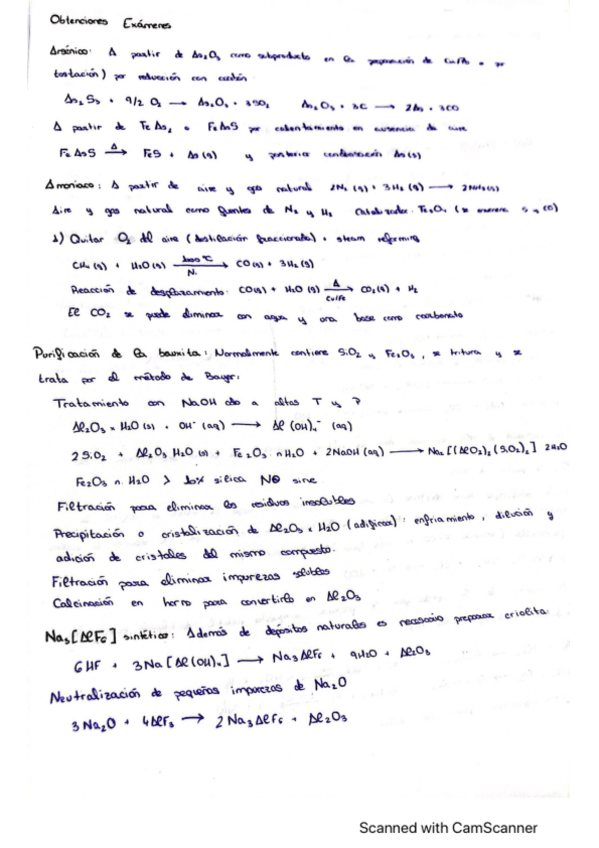 Obtenciones Exámenes
Arsénico: A partir de As₂O₃ como subproducto en la preparación de Cu/Pb + se
tostación) por reducción con carbón
As₂S₃ + 9/2 O₂ → As₂O₃ + 3SO₂ As₂O₃ + 3C → 2As + 3CO
A partir de FeAs₂ o FeAsS por calentamiento en ausencia de aire
FeAsS Δ→ FeS + As(g) y posterior condensación As(s)
Amoniaco: A partir de aire y gas natural 2N₂(g) + 3H₂(g) → 2NH₃(g)
Aire y gas natural como fuentes de N₂ y H₂ Catalizador: Fe₃O₄ (se envenena S y CO)
1) Quitar O₂ del aire (destilación fraccionada) + steam reforming
CH₄(g) + H₂O(g) 1000 ºC→ Ni CO(g) + 3H₂(g)
Reacción de desplazamiento: CO(g) + H₂O(g) Δ→ Cu/Fe CO₂(g) + H₂
El CO₂ se puede eliminar con agua y una base como carbonato
Purificación de la bauxita: Normalmente contiene SiO₂ y Fe₂O₃, se tritura y se
trata por el método de Bayer:
Tratamiento con NaOH cdo a altas T y P
Al₂O₃ x H₂O(s) + OH⁻(aq) → Al(OH)₄⁻(aq)
2SiO₂ + Al₂O₃ H₂O(s) + Fe₂O₃ · nH₂O + 2NaOH(aq) → Na₂[(AlO₂)₂(SiO₂)₂] 2H₂O
Fe₂O₃ n H₂O > 10% sílica NO sirve
Filtración para eliminar los residuos insolubles
Precipitación o cristalización de Al₂O₃ x H₂O (adificar): enfriamiento, dilución y
adición de cristales del mismo compuesto.
Filtración para eliminar impurezas solubles
Calcinación en horno para convertirlo en Al₂O₃
Na₃[AlF₆] sintético: Además de depósitos naturales es necesario preparar criolita:
6HF + 3Na[Al(OH)₄] → Na₃AlF₆ + 9H₂O + Al₂O₃
Neutralización de pequeñas impurezas de Na₂O
3Na₂O + 4AlF₃ → 2Na₃AlF₆ + Al₂O₃
Scanned with CamScanner